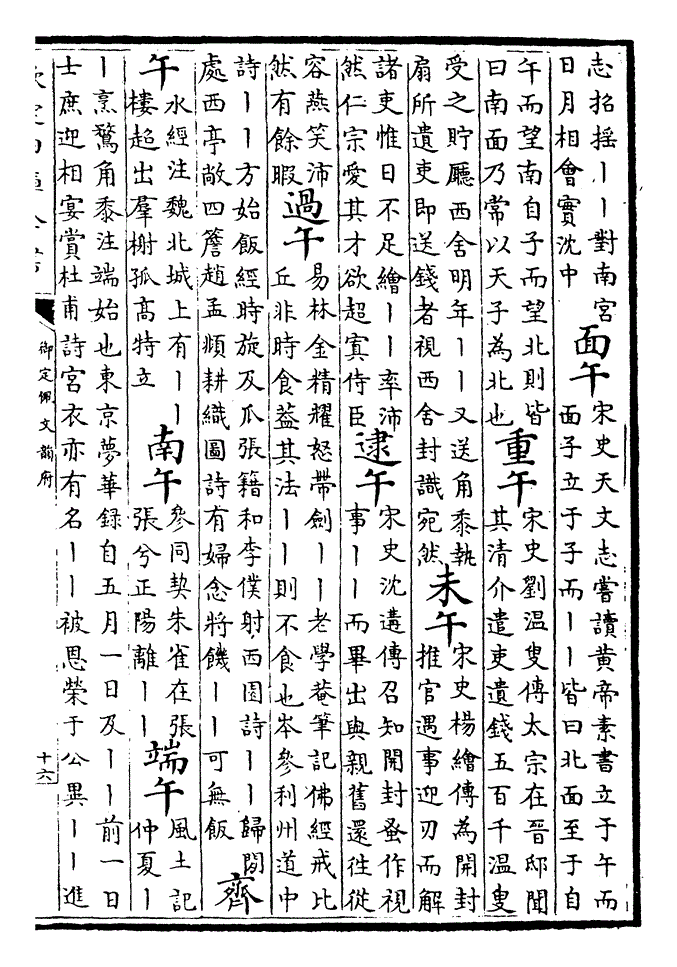 志招搖丨丨對南宮
日月相會實沈中
面午
宋史天文志嘗讀黄帝素書立于午而
面子立于子而丨丨皆曰北面至于自
午而望南自子而望北則皆
曰南面乃常以天子為北也
重午
宋史劉溫叟傳太宗在晉邸聞
其清介遣吏遺錢五百千溫叟
受之貯廳西舍明年丨丨又送角黍執
扇所遺吏即送錢者視西舍封識宛然
未午
宋史楊繪傳為開封
推官遇事迎刃而解
諸吏惟日不足繪丨丨率沛
然仁宗愛其才欲超寘侍臣
逮午
宋史沈遘傳召知開封蚤作視
事丨丨而畢出與親舊還徃從
容燕笑沛
然有餘暇
過午
易林金精耀怒帶劍丨丨老學菴筆記佛經戒比
丘非時食葢其法丨丨則不食也岑參利州道中
詩丨丨方始飯經時旋及瓜張籍和李僕射西園詩丨丨歸閤
處西亭敞四簷趙孟頫耕織圖詩有婦念將饑丨丨可無飯
齊
午
水經注魏北城上有丨丨
樓超出羣榭孤髙特立
南午
參同契朱雀在張
張兮正陽離丨丨
端午
風土記
仲夏丨
丨烹鶩角黍注端始也東京夢華録自五月一日及丨丨前一日
士庶迎相宴賞杜甫詩宮衣亦有名丨丨被恩榮于公異丨丨進
御定佩文韻府
十六